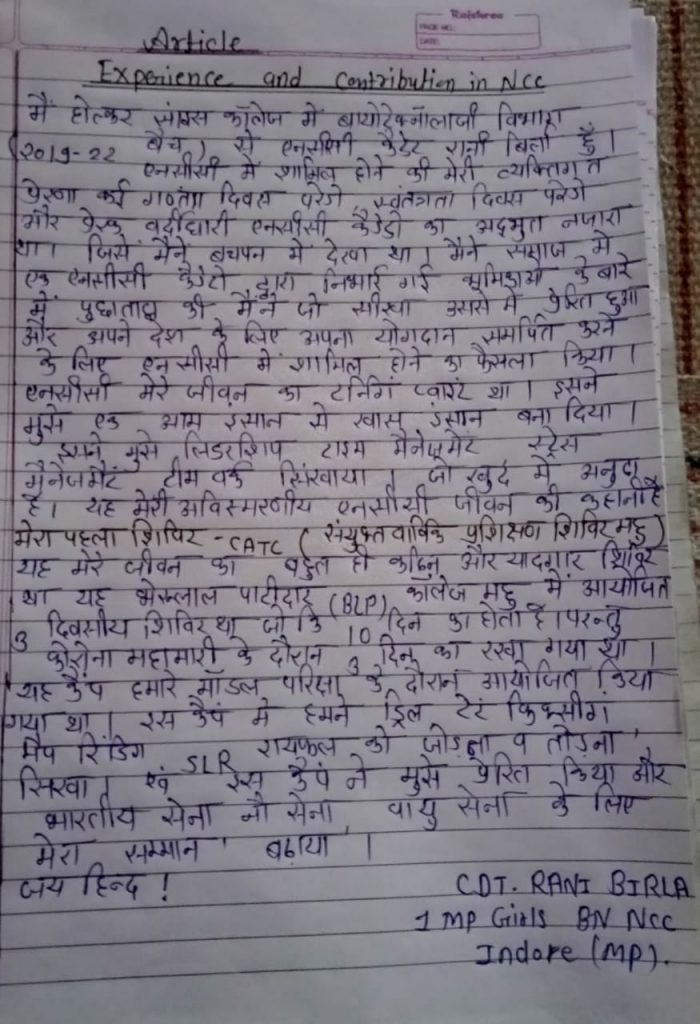 Reliforma
PAGE NO.:
DATE:
Article
Experience and contribution in NCC
मैं होल्कर सांइस कॉलेज में बायोटेक्नॉलाजी विभाग
(2019-22 बैच) से एनसीसी कैडेट रानी बिर्ला हूँ।
एनसीसी में शामिल होने की मेरी व्यक्तिगत
प्रेरणा कई गणतंत्र दिवस परेडो, स्वतंत्रता दिवस परेडो
और प्रेरक वर्दीधारी एनसीसी कैडेटो का अदभुत नजारा
था। जिसे मैने बचपन में देखा था। मैने समाज मे
एक एनसीसी कैडेटो द्वारा निभाई गई भूमिकाओ के बारे
में पुछताछ की मैंने जो सीखा उससे में प्रेरित हुआ
और अपने देश के लिए अपना योगदान समर्पित करने
के लिए एनसीसी में शामिल होने का फैसला किया।
एनसीसी मेरे जीवन का टर्निंग प्वाइंट था। इसने
मुझे एक आम इंसान से खास इंसान बना दिया।
इसने मुझे लिडरशिप टाइम मैनेजमेंट स्ट्रेस
मैनेजमेंट टीम वर्क सिखाया। जो खुद में अनुठा
है। यह मेरी अविस्मरणीय एनसीसी जीवन की कहानी है
मेरा पहला शिविर - CATC (संयुक्त वार्षिक प्रशिक्षण शिविर महु)
यह मेरे जीवन का बहुत ही कठिन और यादगार शिविर
था यह भेरूलाल पाटीदार (BLP) कॉलेज महु में आयोजित
3 दिवसीय शिविर था जो कि 10 दिन का होता है। परन्तु
कोरोना महामारी के दौरान 3 दिन का रखा गया था।
यह कैंप हमारे मॉडल परिक्षा के दौरान आयोजित किया
गया था। इस कैंप में हमने ड्रिल टेंट
मैप रिडिंग SLR रायफल को जोड़ना व तोड़ना
सिखा। एवं इस कैंप ने मुझे प्रेरित किया और
भारतीय सेना नौ सेना, वायु सेना के लिए
मेरा सम्मान बढ़ाया।
जय हिन्द!
CDT. RANI BIRLA
1 MP Girls BN NCC
Indore (MP).